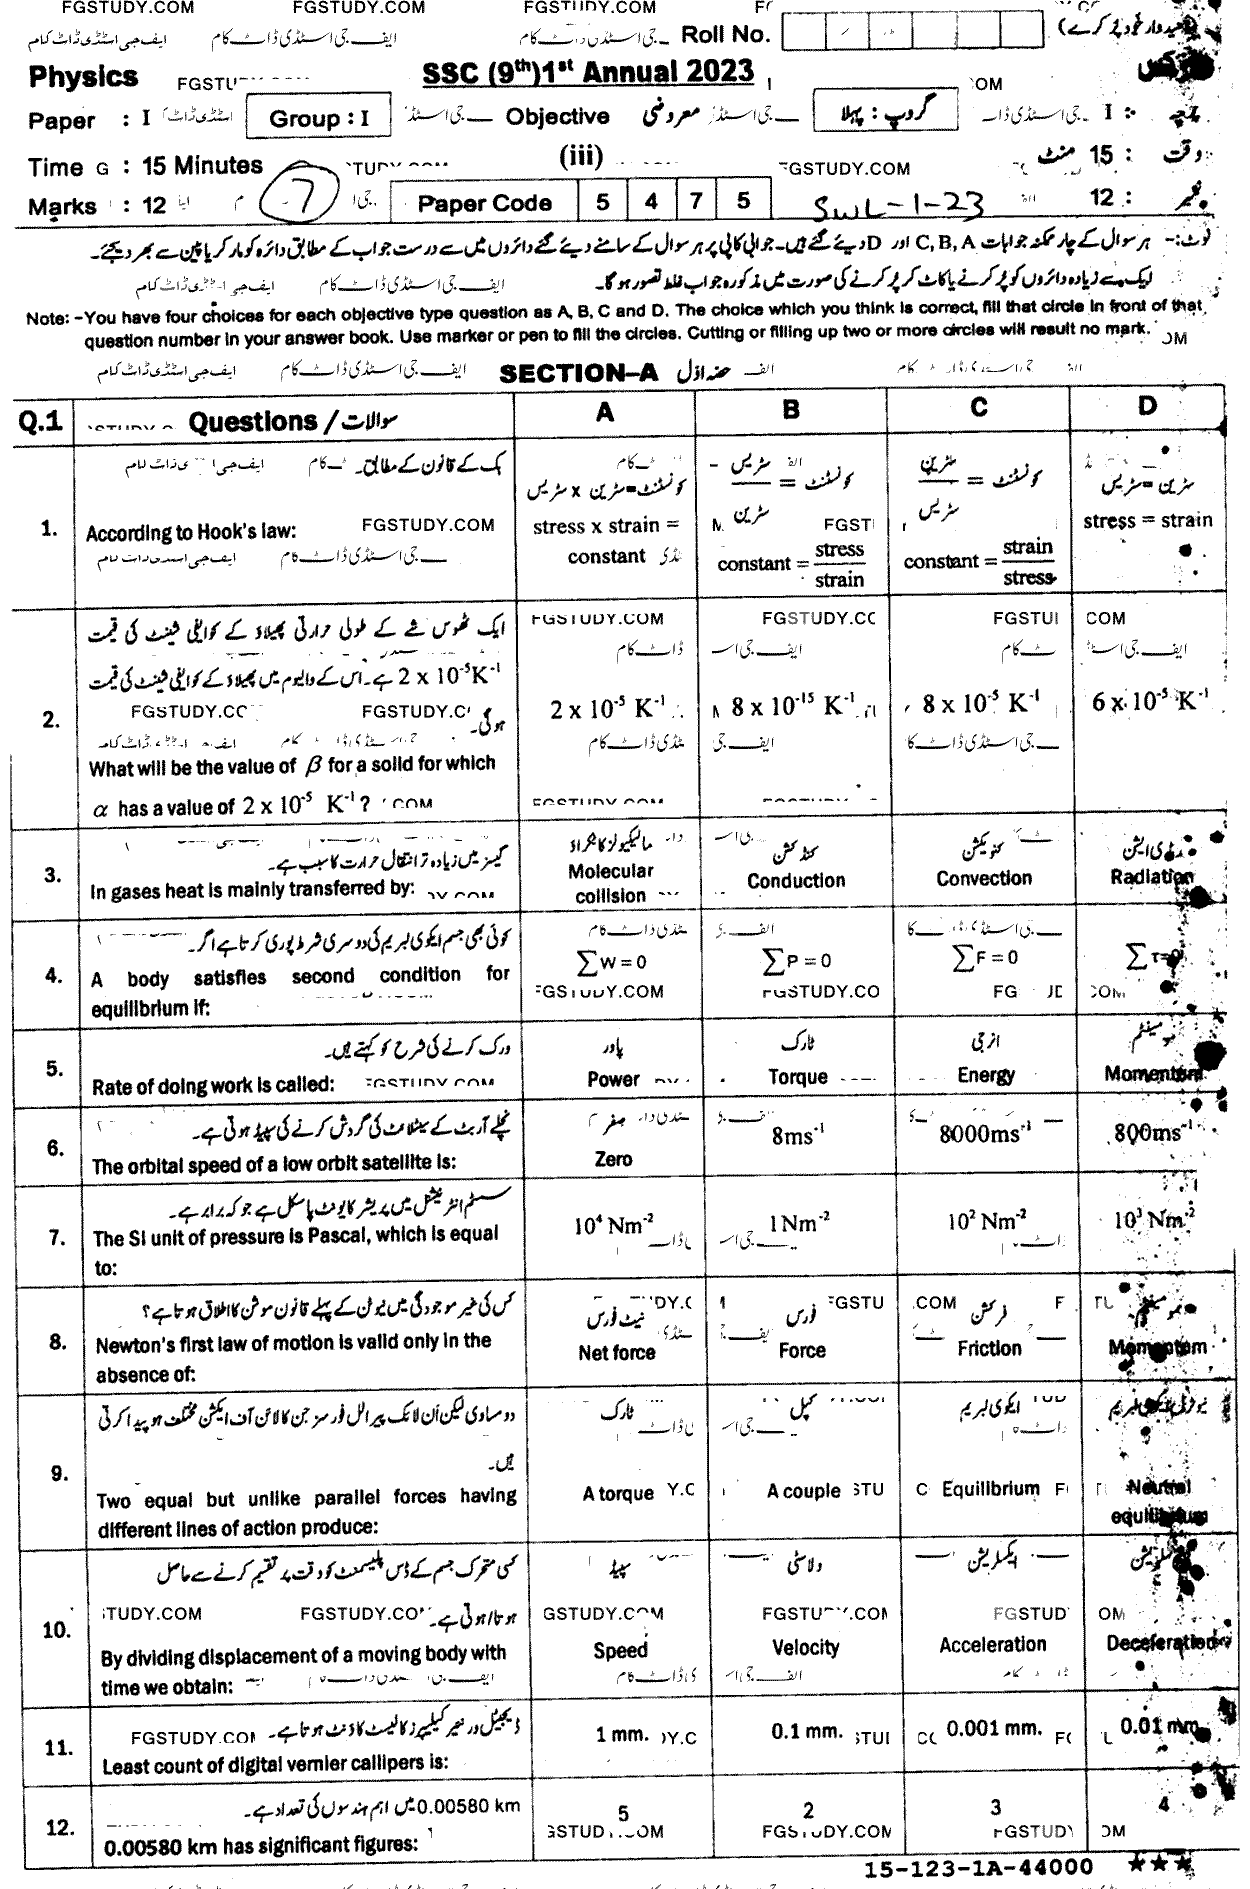 FGSTUDY.COM FGSTUDY.COM FGSTUDY.COM
ایف جی اسٹڈی ڈاٹ کام
Roll No.
(امیدوار خود پُر کرے)
Physics
SSC (9th)1st Annual 2023
Paper : I Group : I Objective معروضی گروپ : پہلا پرچہ : I
Time : 15 Minutes (iii) وقت : 15 منٹ
Marks : 12 7 Paper Code 5 4 7 5 SWL-1-23 نمبر : 12
نوٹ:- ہر سوال کے چار ممکنہ جوابات C, B, A اور D دیئے گئے ہیں۔ جوابی کاپی پر ہر سوال کے سامنے دیئے گئے دائروں میں سے درست جواب کے مطابق دائرہ کو مارکر یا پین سے بھر دیجئے۔
ایک سے زیادہ دائروں کو پُر کرنے یا کاٹ کر پُر کرنے کی صورت میں مذکورہ جواب غلط تصور ہو گا۔
Note: -You have four choices for each objective type question as A, B, C and D. The choice which you think is correct, fill that circle in front of that
question number in your answer book. Use marker or pen to fill the circles. Cutting or filling up two or more circles will result no mark.
SECTION-A حصہ اوّل
Q.1 Questions / سوالات A B C D
ہک کے قانون کے مطابق۔
1. According to Hook's law:
کونسٹنٹ=سٹرین x سٹریس
stress x strain = constant
کونسٹنٹ = سٹریس / سٹرین
constant = stress / strain
کونسٹنٹ = سٹرین / سٹریس
constant = strain / stress
سٹرین=سٹریس
stress = strain
ایک ٹھوس شے کے طولی حرارتی پھیلاؤ کے کوایفی شینٹ کی قیمت
2 x 10⁻⁵K⁻¹ ہے۔ اس کے والیوم میں پھیلاؤ کے کوایفی شینٹ کی قیمت
ہوگی۔
2. What will be the value of β for a solid for which
α has a value of 2 x 10⁻⁵ K⁻¹ ?
2 x 10⁻⁵ K⁻¹ 8 x 10⁻¹⁵ K⁻¹ 8 x 10⁻⁵ K⁻¹ 6 x 10⁻⁵ K⁻¹
گیسز میں زیادہ تر انتقال حرارت کا سبب ہے۔
3. In gases heat is mainly transferred by:
مالیکیولز کا ٹکراؤ کنڈکشن کنویکشن ریڈی ایشن
Molecular collision Conduction Convection Radiation
کوئی بھی جسم ایکوی لبریم کی دوسری شرط پوری کرتا ہے اگر۔
4. A body satisfies second condition for
equilibrium if:
∑W = 0 ∑P = 0 ∑F = 0 ∑τ=0
ورک کرنے کی شرح کو کہتے ہیں۔
5. Rate of doing work is called:
پاور ٹارک انرجی مومینٹم
Power Torque Energy Momentum
نچلے آربٹ کے سیٹلائٹ کی گردش کرنے کی سپیڈ ہوتی ہے۔
6. The orbital speed of a low orbit satellite is:
صفر
Zero 8ms⁻¹ 8000ms⁻¹ 800ms⁻¹
سسٹم انٹرنیشنل میں پریشر کا یونٹ پاسکل ہے جو کہ برابر ہے۔
7. The SI unit of pressure is Pascal, which is equal
to:
10⁴ Nm⁻² 1Nm⁻² 10² Nm⁻² 10³ Nm⁻²
کس کی غیر موجودگی میں نیوٹن کے پہلے قانون موشن کا اطلاق ہوتا ہے؟
8. Newton's first law of motion is valid only in the
absence of:
نیٹ فورس فورس فرکشن مومینٹم
Net force Force Friction Momentum
دو مساوی لیکن اَن لائک پیرالل فورسز جن کا لائن آف ایکشن مختلف ہو پیدا کرتی
ہیں۔
9. Two equal but unlike parallel forces having
different lines of action produce:
ٹارک کپل ایکوی لبریم نیوٹرل ایکوی لبریم
A torque A couple Equilibrium Neutral equilibrium
کسی متحرک جسم کے ڈس پلیسمنٹ کو وقت پر تقسیم کرنے سے حاصل
ہوتا/ہوتی ہے۔
10. By dividing displacement of a moving body with
time we obtain:
سپیڈ ولاسٹی ایکسلریشن
Speed Velocity Acceleration Deceleration
ڈیجیٹل ورنیئر کیلیپرز کا لیسٹ کاؤنٹ ہوتا ہے۔
11. Least count of digital vernier callipers is:
1 mm. 0.1 mm. 0.001 mm. 0.01 mm.
0.00580 km میں اہم ہندسوں کی تعداد ہے۔
12. 0.00580 km has significant figures:
5 2 3 4
15-123-1A-44000 ★★★